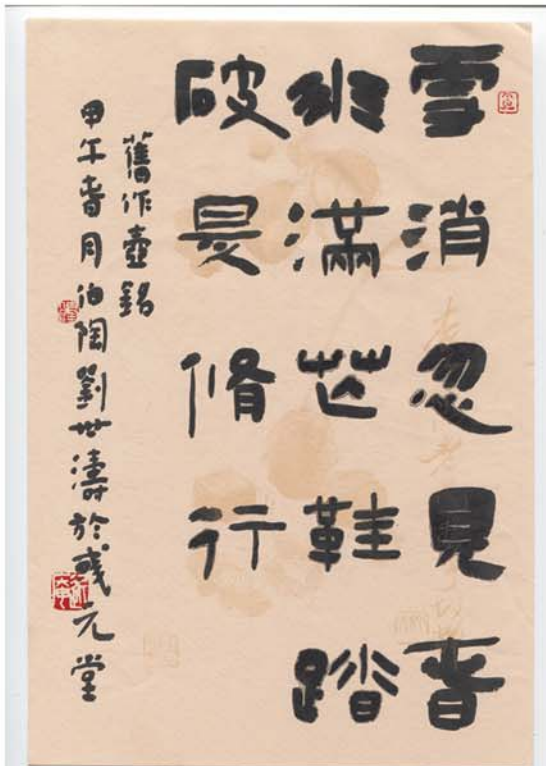 雪消忽見春
水滿芒鞋踏
破是脩行
舊作壺銘
甲午春月伯陶劉世濤於元堂